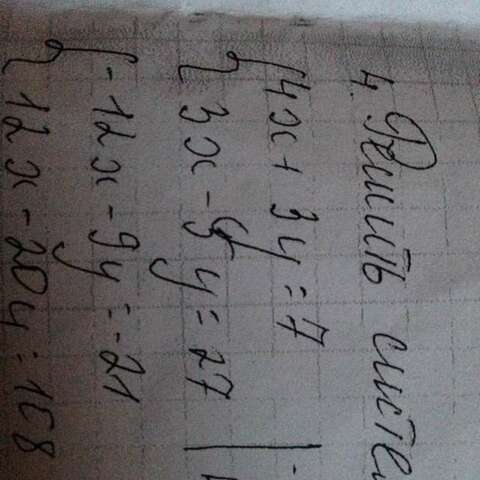 4. Решить систем
{ 4x + 3y = 7
{ 3x - 5y = 27 |
{ -12x - 9y = -21
{ 12x - 20y = 108